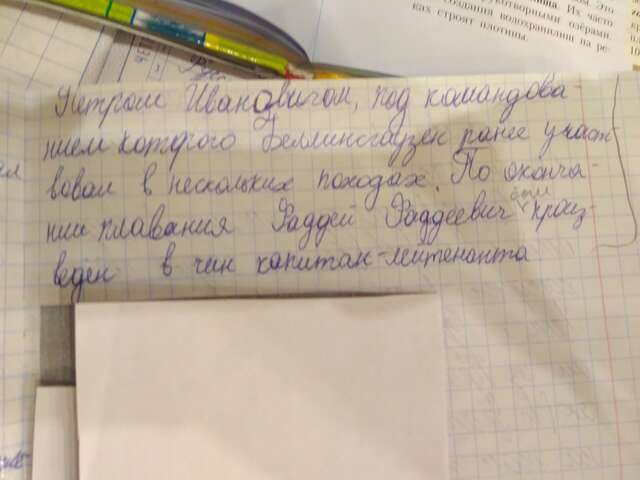 этом. Это
ница. Их часто
рукотворными озёрами.
создания водохранилищ на ре-
ках строят плотины.
Петром Ивановичом, под командова-
нием которого Беллинсгаузен ранее участ-
вовал в нескольких походах. По оконча-
нии плавания Фаддей Фаддеевич был произ-
веден в чин капитан-лейтенанта